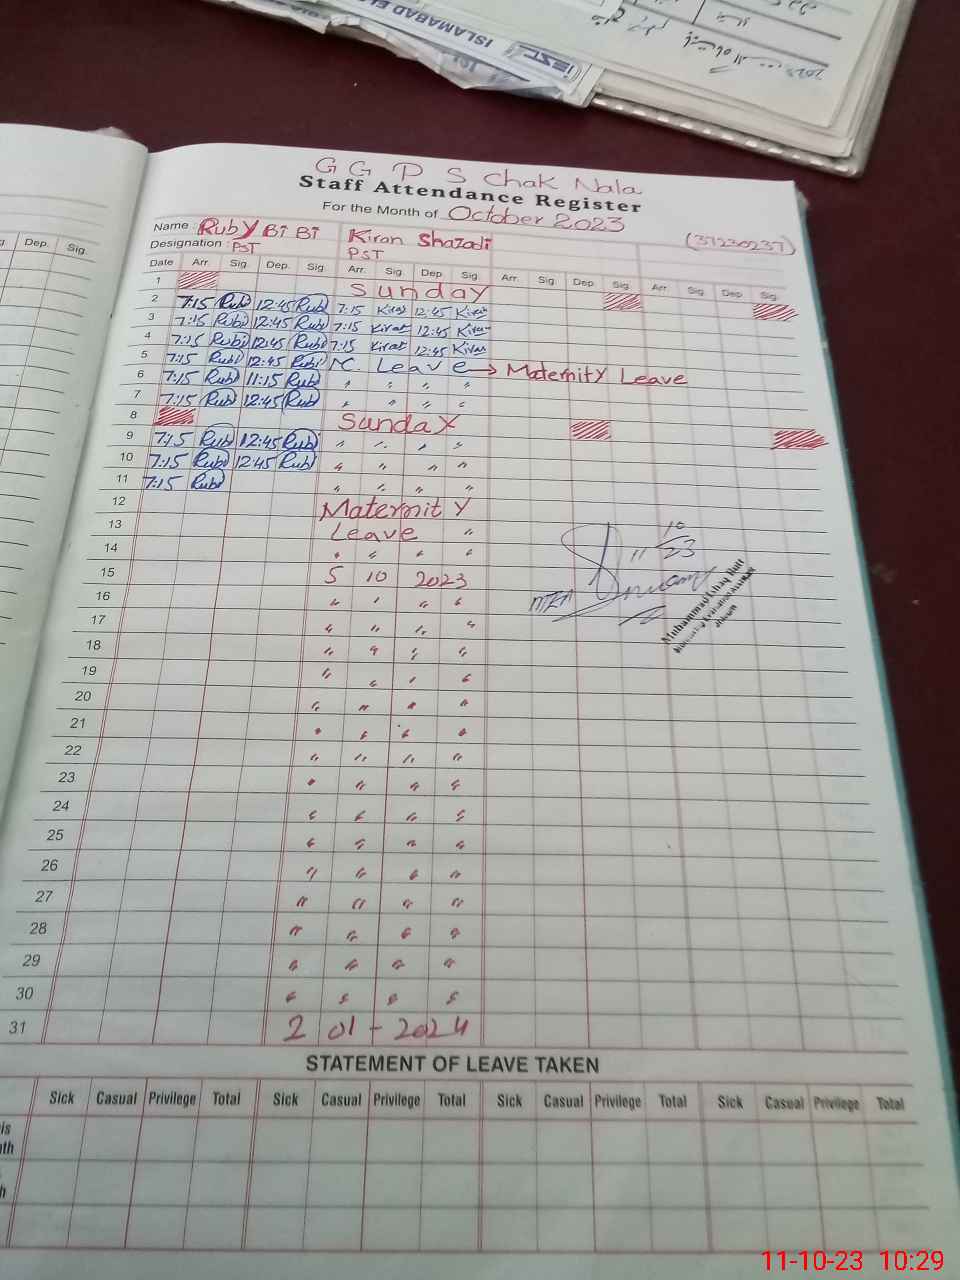 ISLAMABAD EL
IESC
2023
G G P S Chak Nala
Staff Attendance Register
For the Month of October 2023
Name : Ruby Bi Bi Kiran Shazadi (37230237)
Designation : PST PST
Date Arr. Sig. Dep. Sig. Arr. Sig. Dep. Sig. Arr. Sig. Dep. Sig. Arr. Sig. Dep. Sig.
1 Sunday
2 7:15 Rubi 12:45 Rubi 7:15 Kiran 12:45 Kiran
3 7:15 Rubi 12:45 Rubi 7:15 Kiran 12:45 Kiran
4 7:15 Rubi 12:45 Rubi 7:15 Kiran 12:45 Kiran
5 7:15 Rubi 12:45 Rubi M. Leave → Maternity Leave
6 7:15 Rubi 11:15 Rubi " " " "
7 7:15 Rubi 12:45 Rubi " " " "
8 Sunday
9 7:15 Rubi 12:45 Rubi " " " "
10 7:15 Rubi 12:45 Rubi " " " "
11 7:15 Rubi " " " "
12 Maternity
13 Leave "
14 " " " "
15 5 10 2023
16 " " " "
17 " " " "
18 " " " "
19 " " " "
20 " " " "
21 " " " "
22 " " " "
23 " " " "
24 " " " "
25 " " " "
26 " " " "
27 " " " "
28 " " " "
29 " " " "
30 " " " "
31 2 01 - 2024
11 10 23
MEA
Muhammad Butt
Jhelum
STATEMENT OF LEAVE TAKEN
Sick Casual Privilege Total Sick Casual Privilege Total Sick Casual Privilege Total Sick Casual Privilege Total
11-10-23 10:29